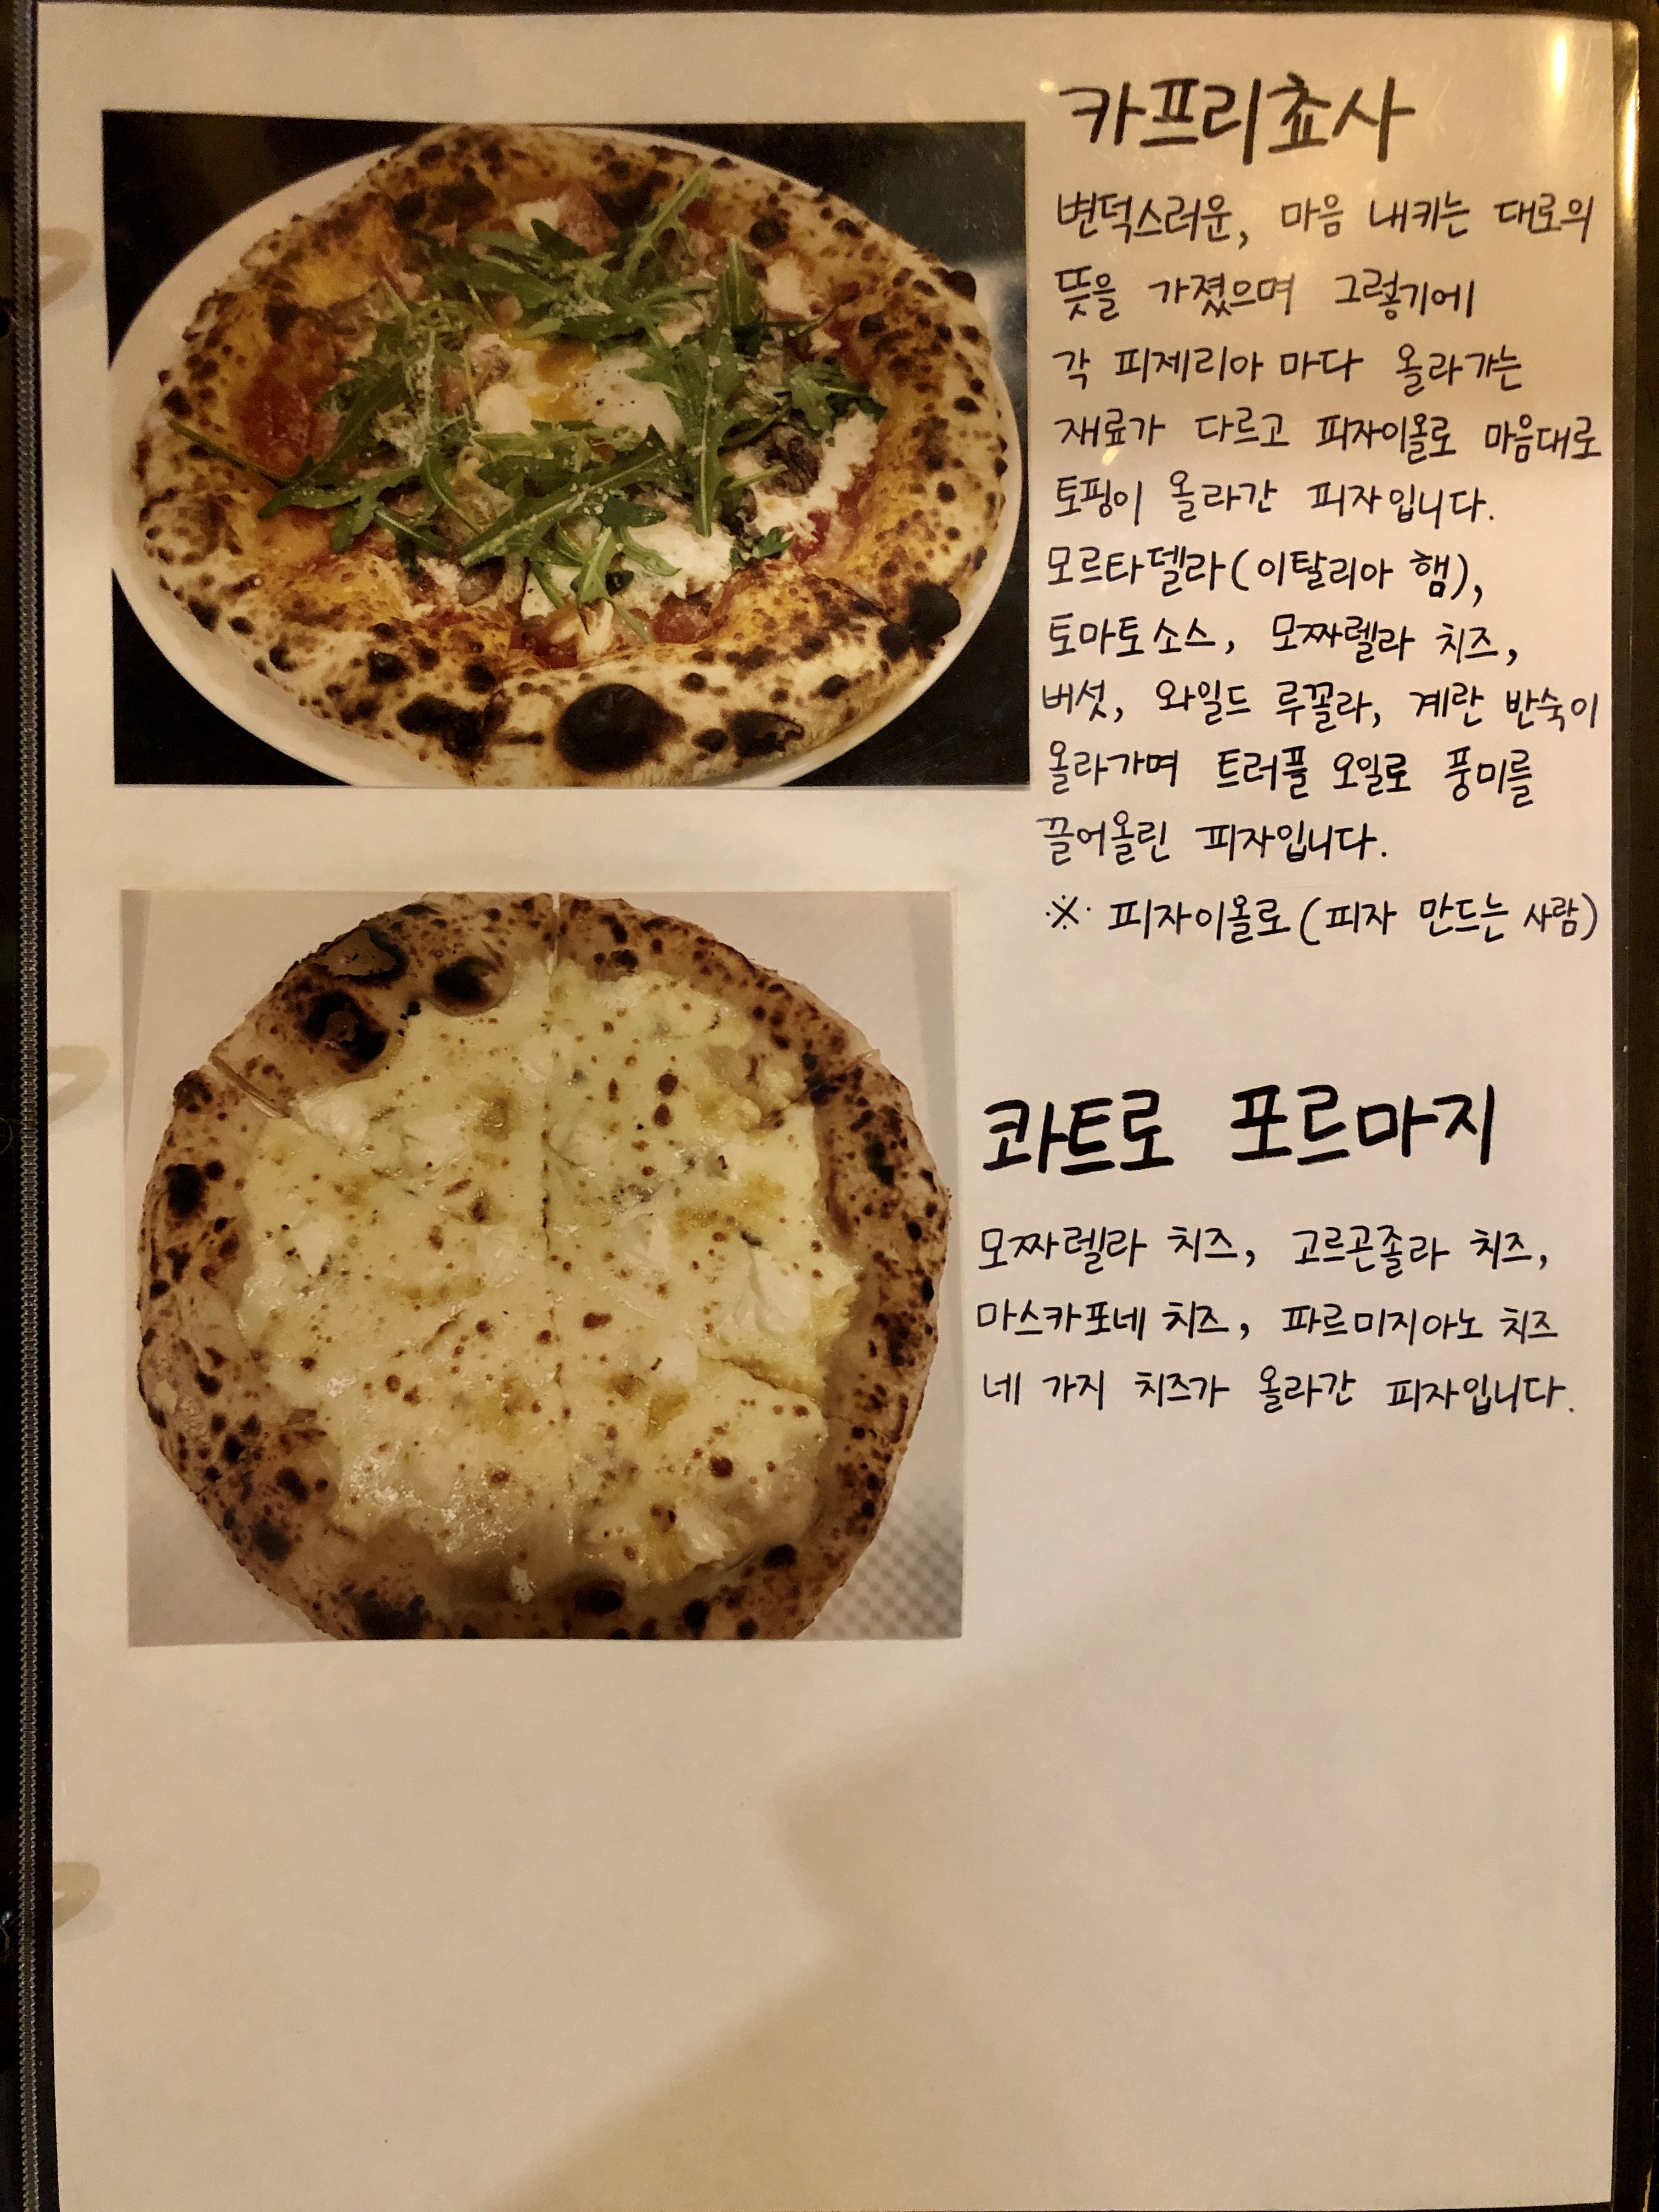 카프리쵸사
변덕스러운, 마음 내키는 대로의
뜻을 가졌으며 그렇기에
각 피제리아 마다 올라가는
재료가 다르고 피자이올로 마음대로
토핑이 올라간 피자입니다.
모르타델라(이탈리아 햄),
토마토소스, 모짜렐라 치즈,
버섯, 와일드 루꼴라, 계란 반숙이
올라가며 트러플 오일로 풍미를
끌어올린 피자입니다.
※ 피자이올로(피자 만드는 사람)
콰트로 포르마지
모짜렐라 치즈, 고르곤졸라 치즈,
마스카포네 치즈, 파르미지아노 치즈
네 가지 치즈가 올라간 피자입니다.